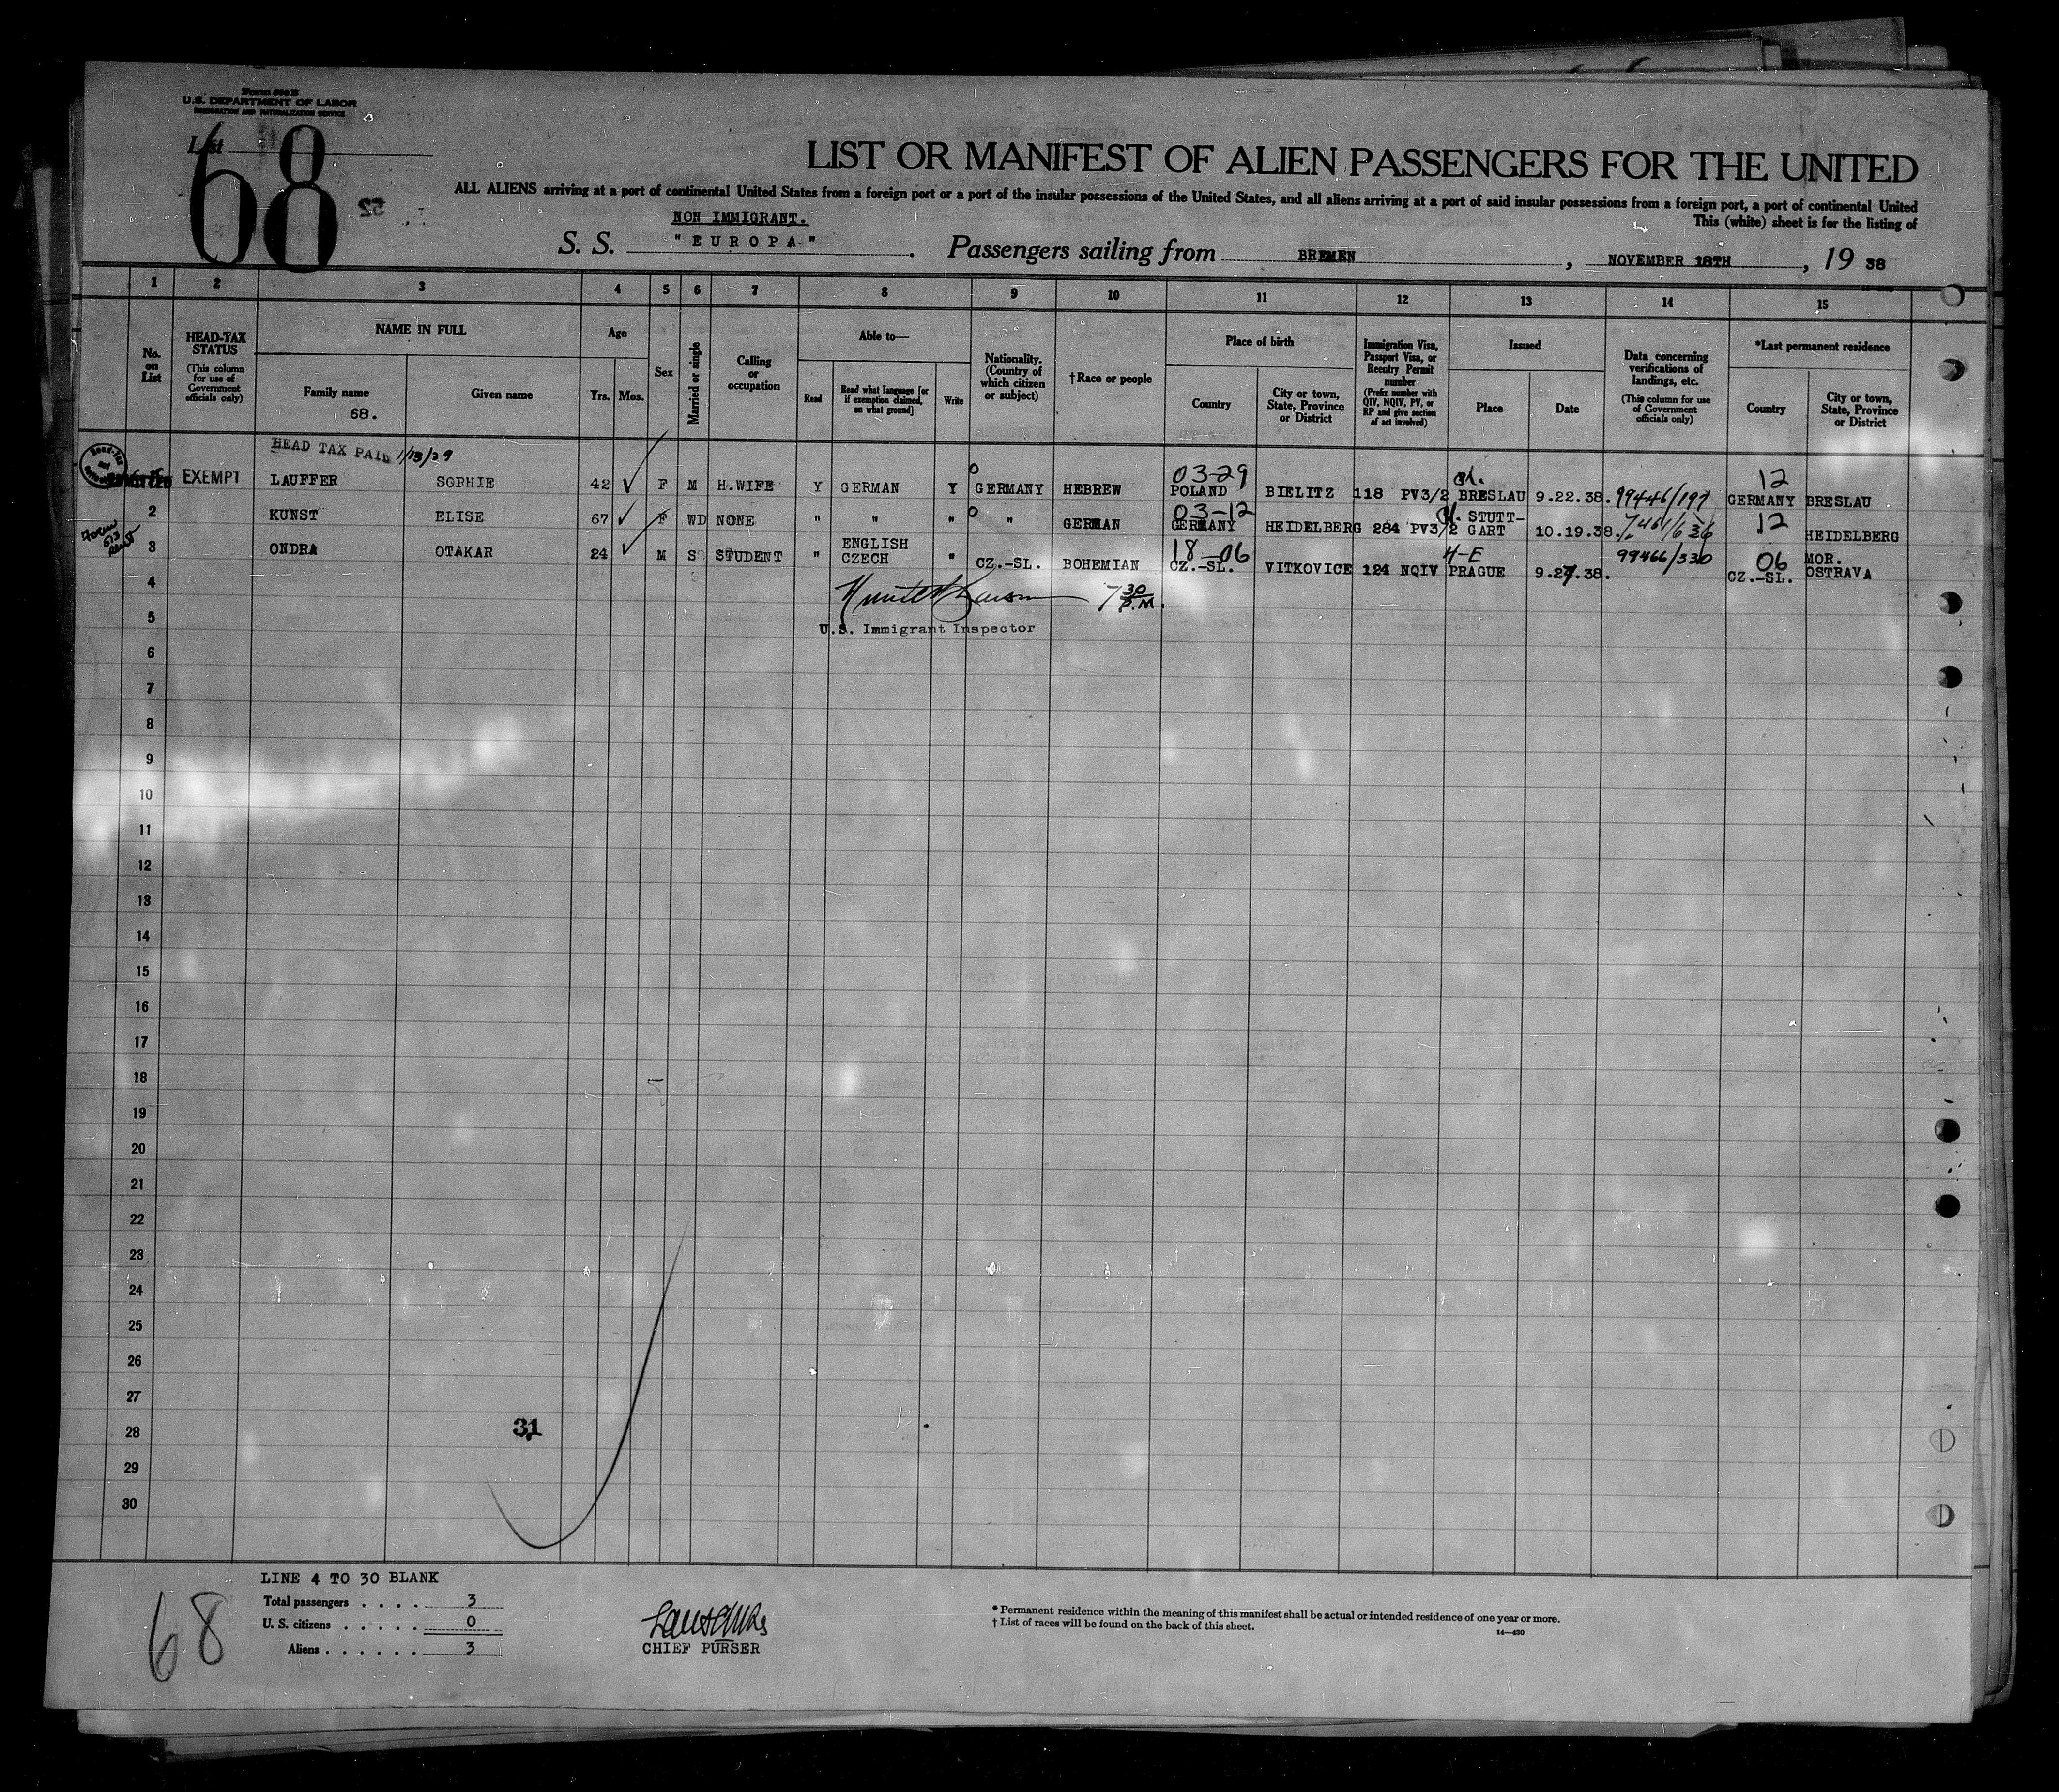 Form 500 B
U.S. DEPARTMENT OF LABOR
IMMIGRATION AND NATURALIZATION SERVICE
List
68
52
LIST OR MANIFEST OF ALIEN PASSENGERS FOR THE UNITED
ALL ALIENS arriving at a port of continental United States from a foreign port or a port of the insular possessions of the United States, and all aliens arriving at a port of said insular possessions from a foreign port, a port of continental United
This (white) sheet is for the listing of
NON IMMIGRANT.
S. S. "EUROPA". Passengers sailing from BREMEN, NOVEMBER 18TH, 19 38
1 2 3 4 5 6 7 8 9 10 11 12 13 14 15
No. on List
HEAD-TAX STATUS (This column for use of Government officials only)
NAME IN FULL
Family name
68.
Given name
Age
Yrs. Mos.
Sex
Married or single
Calling or occupation
Able to—
Read
Read what language [or if exemption claimed, on what ground]
Write
Nationality. (Country of which citizen or subject)
†Race or people
Place of birth
Country
City or town, State, Province or District
Immigration Visa, Passport Visa, or Reentry Permit number (Prefix number with QIV, NQIV, PV, or RP and give section of act involved)
Issued
Place
Date
Data concerning verifications of landings, etc. (This column for use of Government officials only)
*Last permanent residence
Country
City or town, State, Province or District
HEAD TAX PAID 1/13/39
EXEMPT LAUFFER SOPHIE 42 F M H.WIFE Y GERMAN Y GERMANY HEBREW 03-29 POLAND BIELITZ 118 PV3/2 BRESLAU 9.22.38. 99446/197 12 GERMANY BRESLAU
2 KUNST ELISE 67 F WD NONE " " " " GERMAN 03-12 GERMANY HEIDELBERG 284 PV3/2 STUTT-GART 10.19.38. 12 HEIDELBERG
3 ONDRA OTAKAR 24 M S STUDENT " ENGLISH CZECH " CZ.-SL. BOHEMIAN 18-06 CZ.-SL. VITKOVICE 124 NQIV 4-E PRAGUE 9.27.38. 99466/330 06 CZ.-SL. MOR. OSTRAVA
4
7 30 P.M.
5
U.S. Immigrant Inspector
6
7
8
9
10
11
12
13
14
15
16
17
18
19
20
21
22
23
24
25
26
27
28
31
29
30
LINE 4 TO 30 BLANK
Total passengers . . . . 3
U. S. citizens . . . . . 0
Aliens . . . . . . 3
68
CHIEF PURSER
* Permanent residence within the meaning of this manifest shall be actual or intended residence of one year or more.
† List of races will be found on the back of this sheet.
14—430